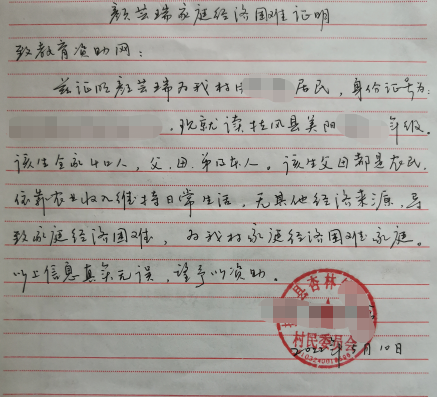 颜芸瑞家庭经济困难证明
致教育资助网：
兹证明颜芸瑞为我村 居民，身份证号为：
，现就读扶风县美阳 年级。
该生全家4口人，父、母、弟及本人。该生父母都是农民，
依靠农业收入维持日常生活，无其他经济来源，导
致家庭经济困难，为我村家庭经济困难家庭。
以上信息真实无误，望予以资助。
县杏林
村民委员会
2022年5月10日